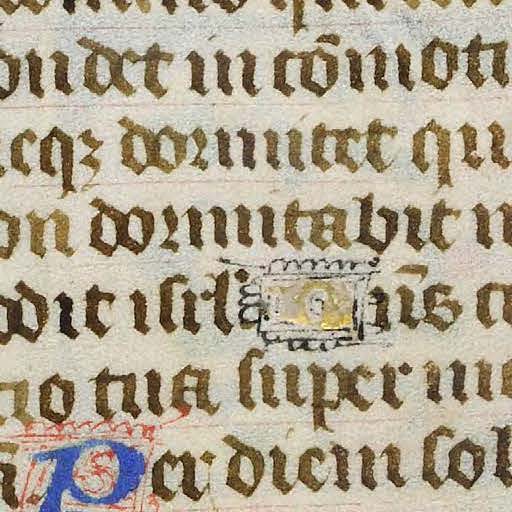 ondet in cōmoti
cqꝫ dormitet qu
on dormitabit n
odit isrl
tio tua super m
Per diem sol